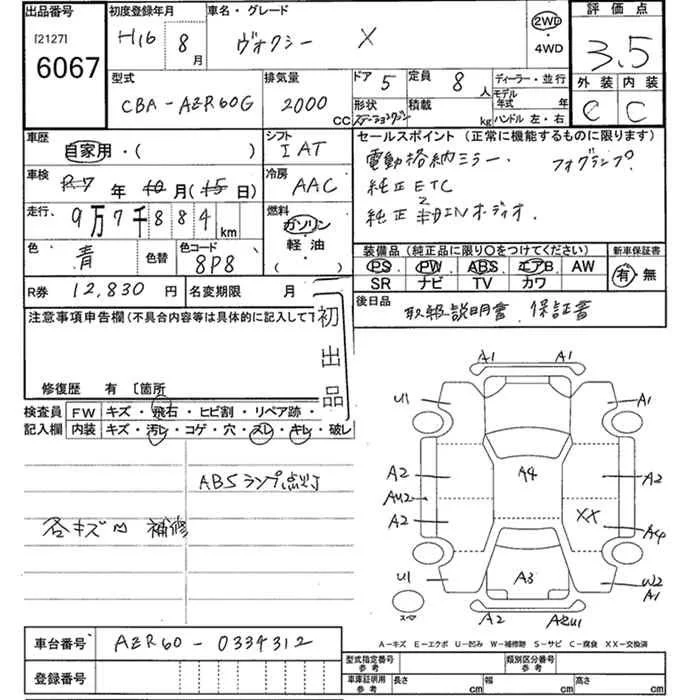 出品番号
[2127]
6067
初度登録年月
H16 8月
車名・グレード
ヴォクシー X
2WD
・4WD
評価点
3.5
外装 内装
C C
型式
CBA-AZR60G
排気量
2000 CC
ドア 5
定員 8人
形状 ステーションワゴン
積載 kg
ディーラー・並行
モデル年式 年
ハンドル 左・右
車歴
自家用・( )
車検
R7年 10月(15日)
走行
9万7千884km
色
青
色替
色コード
8P8
シフト
IAT
冷房
AAC
燃料
ガソリン
軽油
( )
セールスポイント(正常に機能するものに限ります)
電動格納ミラー. フォグランプ
純正ETC
純正 2DIN オーディオ.
装備品(純正品に限り○をつけてください)
PS PW ABS エアB AW
SR ナビ TV カワ
新車保証書
有・無
R券 12,830円
名変期限 月
後日品
取扱説明書. 保証書
注意事項申告欄(不具合内容等は具体的に記入して下
初出品
修復歴 有 〔箇所
検査員記入欄
FW キズ・飛石・ヒビ割・リペア跡・
内装 キズ・汚レ・コゲ・穴・スレ・キレ・破レ
ABSランプ点灯
各キズ凹 補修
A1 A1
U1 A1
A2 A4 A2
AU2 XX
A2 A4
U1 A3 W2
A1
スペア
A2 A2U1
A-キズ E-エクボ U-凹み W-補修跡 S-サビ C-腐食 XX-交換済
車台番号 AZR60-0334312
登録番号
型式指定番号参考
類別区分番号参考
車庫証明用参考 長さ cm 幅 cm 高さ cm